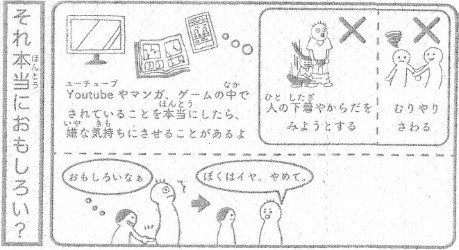 それ本当におもしろい？
ほんとう
ユーチューブ
なか
Youtubeやマンガ、ゲームの中で
ほんとう
されていることを本当にしたら、
いや
きも
嫌な気持ちにさせることがあるよ
ひと
したぎ
人の下着やからだを
みようとする
むりやり
さわる
おもしろいなぁ
ぼくはイヤ。やめて。